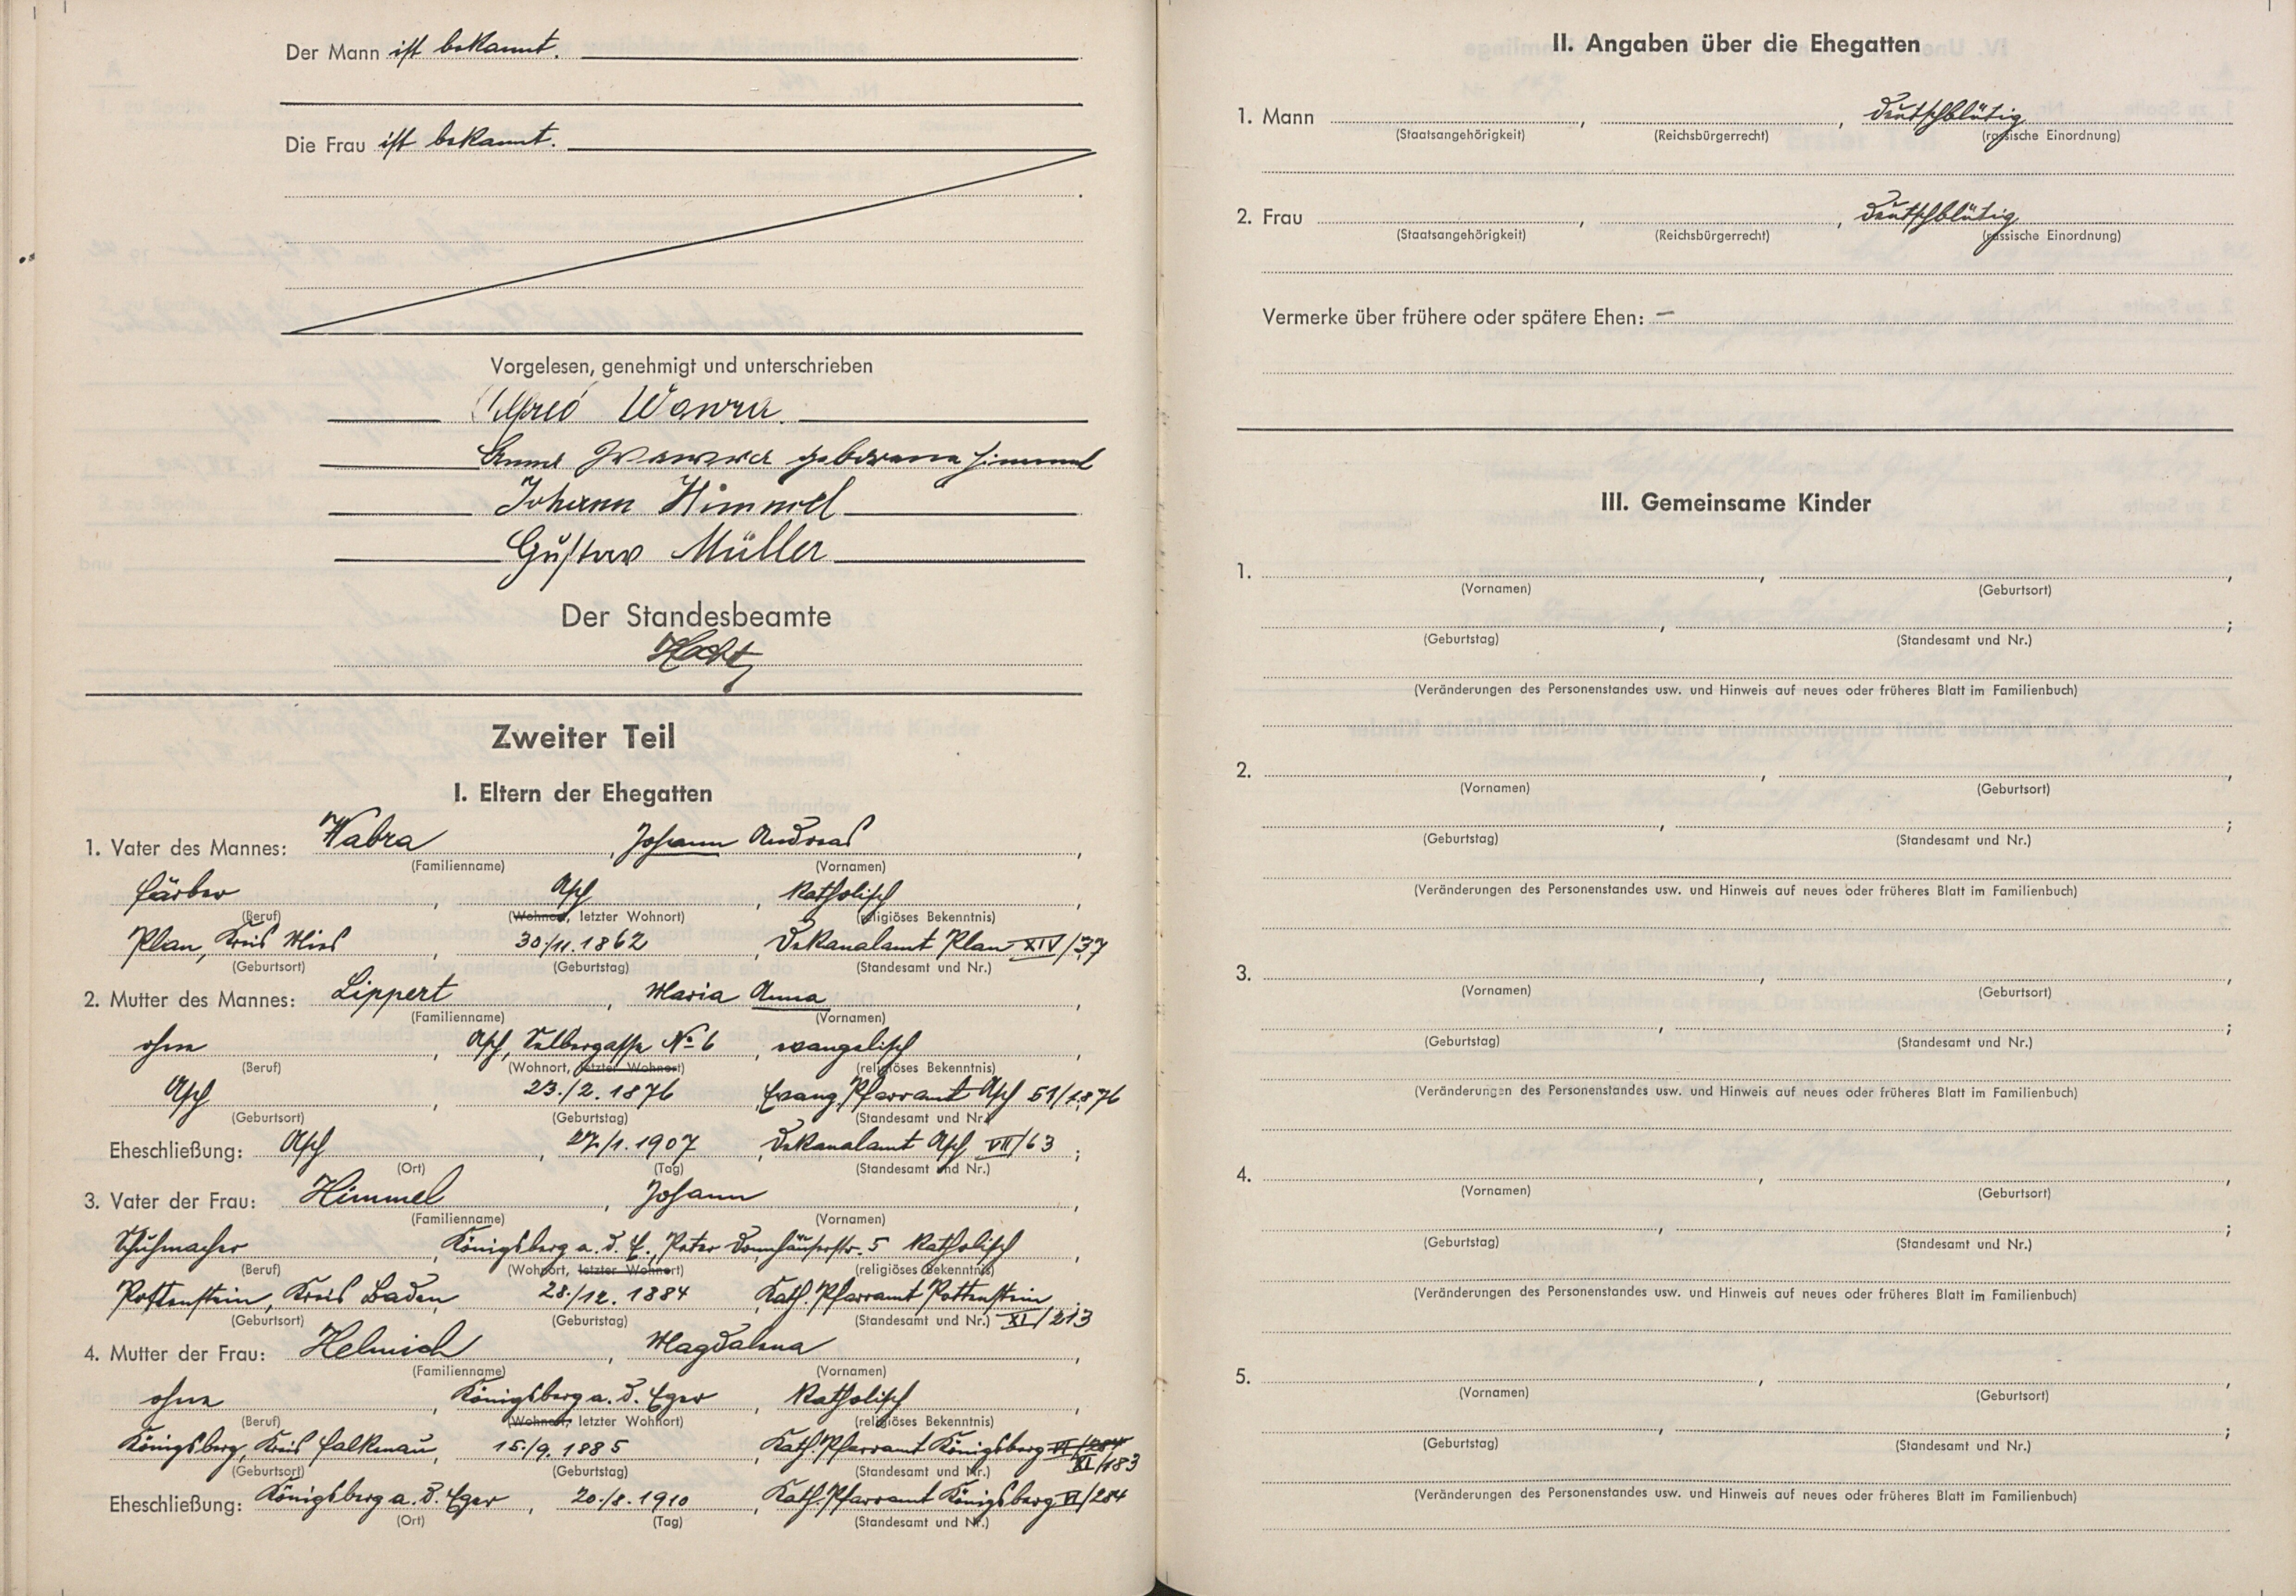 Der Mann ist bekannt.
Die Frau ist bekannt.
Vorgelesen, genehmigt und unterschrieben
Alfred Wawra
Anna Wawra geborene Himmel
Johann Himmel
Gustav Müller
Der Standesbeamte
Zweiter Teil
I. Eltern der Ehegatten
1. Vater des Mannes: Wabra, Johann Andreas,
(Familienname) (Vornamen)
Färber, Asch, katholisch,
(Beruf) (Wohnort, letzter Wohnort) (religiöses Bekenntnis)
Plan, Kreis Mies, 30./11.1862, Dekanalamt Plan XIV/37
(Geburtsort) (Geburtstag) (Standesamt und Nr.)
2. Mutter des Mannes: Lippert, Maria Anna,
(Familienname) (Vornamen)
ohne, Asch, Selbergasse No 6, evangelisch,
(Beruf) (Wohnort, letzter Wohnort) (religiöses Bekenntnis)
Asch, 23./2.1876, Evang. Pfarramt Asch 51/1876
(Geburtsort) (Geburtstag) (Standesamt und Nr.)
Eheschließung: Asch, 27./1.1907, Dekanalamt Asch VII/63;
(Ort) (Tag) (Standesamt und Nr.)
3. Vater der Frau: Himmel, Johann,
(Familienname) (Vornamen)
Schuhmacher, Königsberg a. d. E., Peter Donnhäuserstr. 5 katholisch,
(Beruf) (Wohnort, letzter Wohnort) (religiöses Bekenntnis)
Pottenstein, Kreis Baden, 28./12.1884, Kath. Pfarramt Pottenstein
(Geburtsort) (Geburtstag) (Standesamt und Nr.) XI/213
4. Mutter der Frau: Helmich, Magdalena,
(Familienname) (Vornamen)
ohne, Königsberg a. d. Eger, katholisch,
(Beruf) (Wohnort, letzter Wohnort) (religiöses Bekenntnis)
Königsberg, Kreis Falkenau, 15./9.1885, Kath. Pfarramt Königsberg VI/284
(Geburtsort) (Geburtstag) (Standesamt und Nr.) XI/183
Eheschließung: Königsberg a. d. Eger, 20./8.1910, Kath. Pfarramt Königsberg VI/284
(Ort) (Tag) (Standesamt und Nr.)
II. Angaben über die Ehegatten
1. Mann , , deutschblütig
(Staatsangehörigkeit) (Reichsbürgerrecht) (rassische Einordnung)
2. Frau , , deutschblütig
(Staatsangehörigkeit) (Reichsbürgerrecht) (rassische Einordnung)
Vermerke über frühere oder spätere Ehen: –
III. Gemeinsame Kinder
1. , ,
(Vornamen) (Geburtsort)
, ;
(Geburtstag) (Standesamt und Nr.)
(Veränderungen des Personenstandes usw. und Hinweis auf neues oder früheres Blatt im Familienbuch)
2. , ,
(Vornamen) (Geburtsort)
, ;
(Geburtstag) (Standesamt und Nr.)
(Veränderungen des Personenstandes usw. und Hinweis auf neues oder früheres Blatt im Familienbuch)
3. , ,
(Vornamen) (Geburtsort)
, ;
(Geburtstag) (Standesamt und Nr.)
(Veränderungen des Personenstandes usw. und Hinweis auf neues oder früheres Blatt im Familienbuch)
4. , ,
(Vornamen) (Geburtsort)
, ;
(Geburtstag) (Standesamt und Nr.)
(Veränderungen des Personenstandes usw. und Hinweis auf neues oder früheres Blatt im Familienbuch)
5. , ,
(Vornamen) (Geburtsort)
, ;
(Geburtstag) (Standesamt und Nr.)
(Veränderungen des Personenstandes usw. und Hinweis auf neues oder früheres Blatt im Familienbuch)